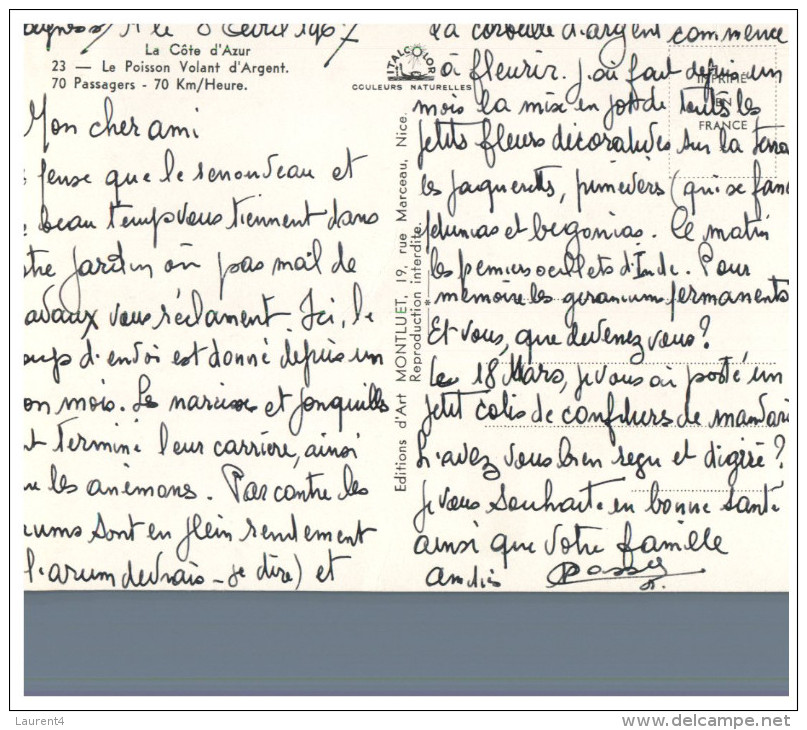 le 8 Avril 1967
La Côte d'Azur
23 — Le Poisson Volant d'Argent.
70 Passagers - 70 Km/Heure.
ITALCOLOR
COULEURS NATURELLES
IMPRIMÉ
EN
FRANCE
Editions d'Art MONTLUET, 19, rue Marceau, Nice.
Reproduction interdite.
Mon cher ami
pense que le renouveau et
beau temps vous tiennent dans
tre jardin où pas mal de
avaux vous réclament. Ici, le
oup d'envoi est donné depuis un
on mois. Les narcisses et jonquilles
t terminé leur carrière, ainsi
les anémones. Par contre les
rums sont en plein rendement
l'arum devrais-je dire) et
La corbeille d'argent commence
à fleurir. J'ai fait depuis un
mois la mise en pot de toutes les
petits fleurs décoratives sur la terra
les paquerettes, primevers (qui se fan
petunias et begonias. Ce matin
les premiers oeillets d'Inde. Pour
mémoire les geraniums permanents
Et vous, que devenez vous?
Le 18 Mars, je vous ai posté un
petit colis de confitures de mandari
L'avez vous bien reçu et digéré?
Je vous souhaite en bonne santé
ainsi que votre famille
Laurent4
www.delcampe.net